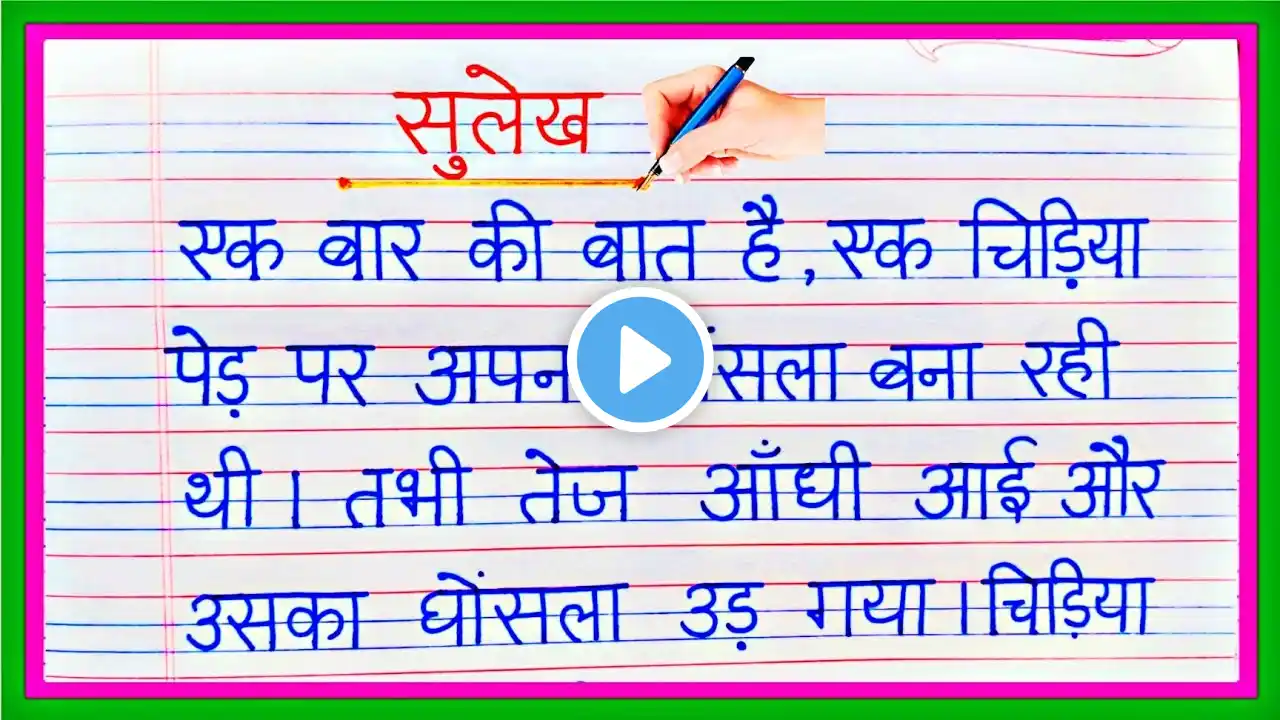 सुलेख
एक बार की बात है, एक चिड़िया
पेड़ पर बना रही
थी। तभी तेज आँधी आई और
उसका घोंसला उड़ गया। चिड़िया